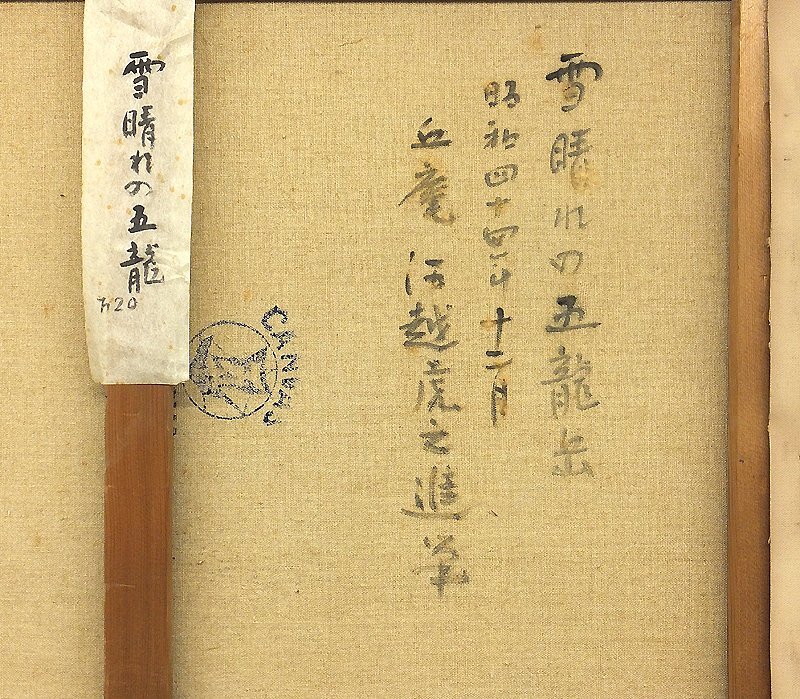 雪晴れの五龍岳
昭和四十四年十二月
河越虎之進筆
雪晴れの五龍
20
CANVAS